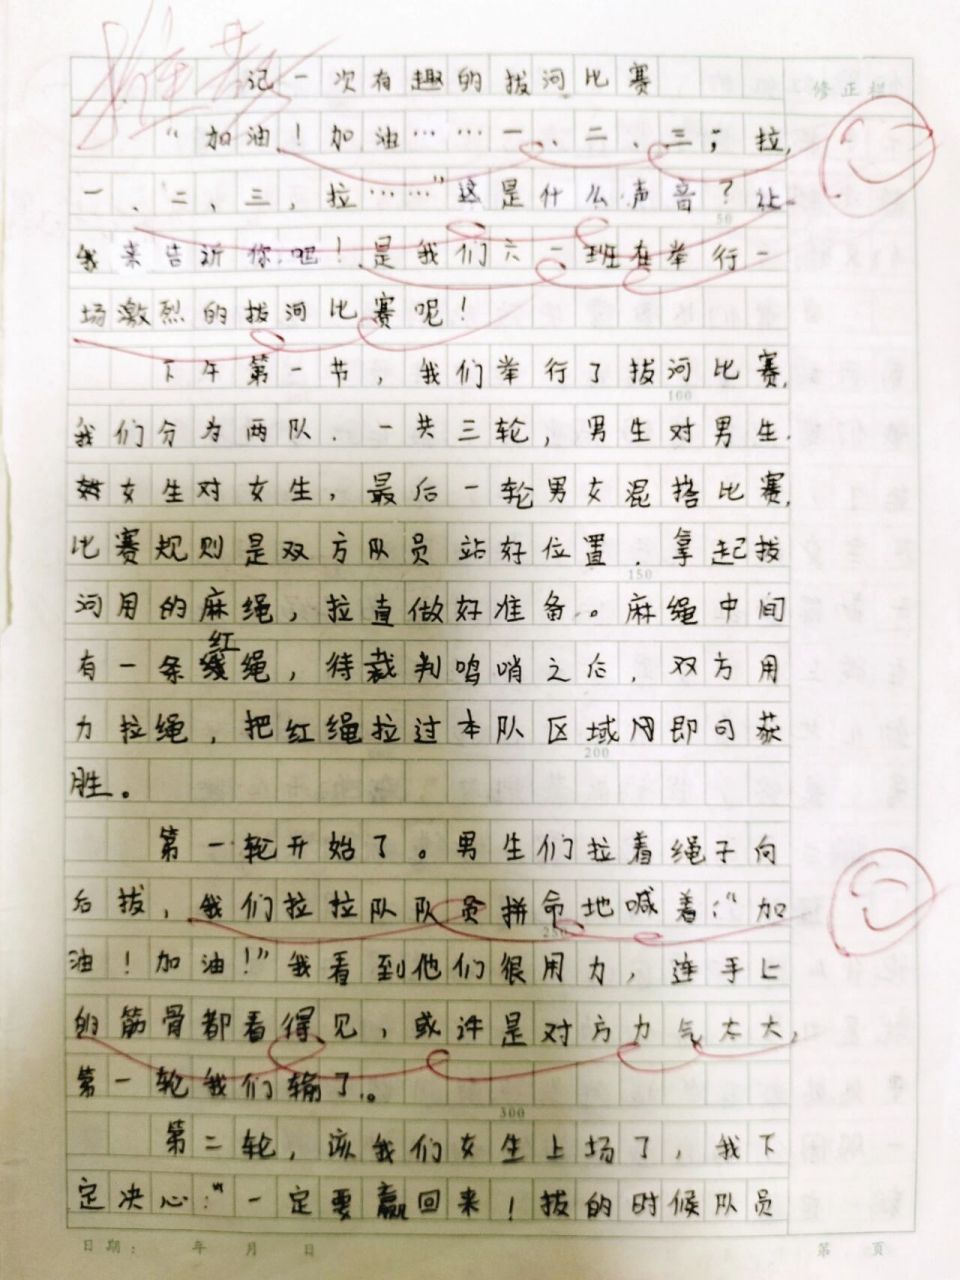 记一次有趣的拔河比赛
修正栏
“加油！加油……一、二、三，拉，
一、二、三，拉……”这是什么声音？让
50
我来告诉你吧！是我们六一班在举行一
场激烈的拔河比赛呢！
下午第一节，我们举行了拔河比赛，
100
我们分为两队．一共三轮，男生对男生．
女生对女生，最后一轮男女混搭比赛，
比赛规则是双方队员站好位置．拿起拔
150
河用的麻绳，拉直做好准备。麻绳中间
有一条红绳，待裁判鸣哨之后，双方用
力拉绳，把红绳拉过本队区域网即可获
200
胜。
第一轮开始了。男生们拉着绳子向
后拔，我们拉拉队队员拼命地喊着：“加
250
油！加油！”我看到他们很用力，连手上
的筋骨都看得见，或许是对方力气太大，
第一轮我们输了。
300
第二轮，该我们女生上场了，我下
定决心：“一定要赢回来！拔的时候队员
日期： 年 月 日 第 页